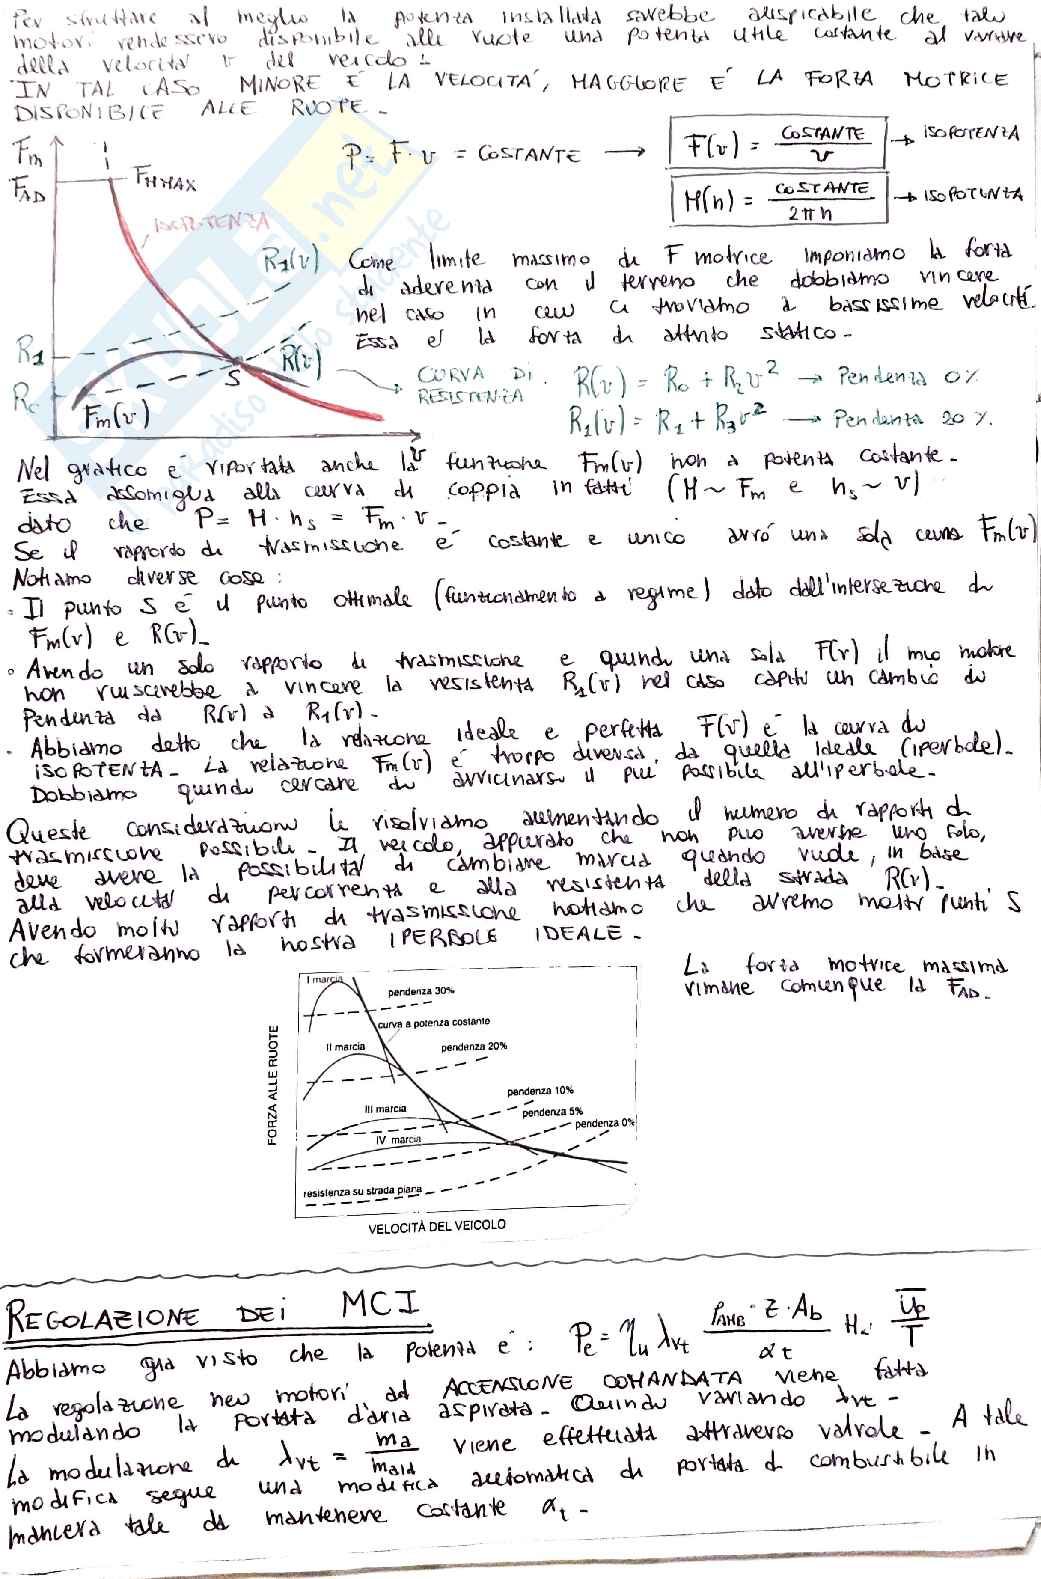 Per sfruttare al meglio la potenza installata sarebbe auspicabile che tali
motori rendessero disponibile alle ruote una potenza utile costante al variare
della velocità v del veicolo:
IN TAL CASO MINORE É LA VELOCITÁ, MAGGIORE É LA FORZA MOTRICE
DISPONIBILE ALLE RUOTE.
Fm
FAD
FMMAX
P = F · v = COSTANTE → F(v) = COSTANTE / v → ISOPOTENZA
M(n) = COSTANTE / 2πn → ISOPOTENZA
ISOPOTENZA
R1(v)
R1
R(v)
S
Fm(v)
v
Come limite massimo di F motrice imponiamo la forza
di aderenza con il terreno che dobbiamo vincere
nel caso in cui ci troviamo a bassissime velocitá.
Essa e' la forza di attrito statico.
CURVA DI RESISTENZA
R(v) = R0 + R2v² → Pendenza 0%
R1(v) = R1 + R3v² → Pendenza 20%.
Nel grafico e' riportata anche la funzione Fm(v) non a potenza costante.
Essa assomiglia alla curva di coppia infatti (M ~ Fm e ns ~ v)
dato che P = M · ns = Fm · v.
Se il rapporto di trasmissione e' costante e unico avró una sola curva Fm(v)
Notiamo diverse cose:
· Il punto S e' il punto ottimale (funzionamento a regime) dato dall'intersezione di
Fm(v) e R(v).
· Avendo un solo rapporto di trasmissione e quindi una sola F(v) il mio motore
non riuscirebbe a vincere la resistenza R1(v) nel caso capiti un cambio di
Pendenza da R(v) a R1(v).
· Abbiamo detto che la relazione ideale e perfetta F(v) e' la curva di
ISOPOTENZA. La relazione Fm(v) e' troppo diversa da quella ideale (iperbole).
Dobbiamo quindi cercare di avvicinarsi il piú possibile all'iperbole.
Queste considerazioni le risolviamo aumentando il numero di rapporti di
trasmissione possibili. Il veicolo, appurato che non puo averne uno solo,
deve avere la possibilitá di cambiare marcia quando vuole, in base
alla velocitá di percorrenza e alla resistenza della strada R(v).
Avendo molti rapporti di trasmissione notiamo che avremo molti punti S
che formeranno la nostra IPERBOLE IDEALE.
La forza motrice massima
rimane comunque la FAD.
FORZA ALLE RUOTE
I marcia
pendenza 30%
curva a potenza costante
II marcia
pendenza 20%
pendenza 10%
III marcia
pendenza 5%
pendenza 0%
IV marcia
resistenza su strada piana
VELOCITÀ DEL VEICOLO
REGOLAZIONE DEI MCI
Abbiamo giá visto che la potenza e': Pe = ηu λvt ρAMB · Z · Ab / αt Hi ūp / T
La regolazione nei motori ad ACCENSIONE COMANDATA viene fatta
modulando la portata d'aria aspirata. Quindi variando λvt.
La modulazione di λvt = ma / maid viene effettuata attraverso valvole. A tale
modifica segue una modifica automatica di portata di combustibile in
maniera tale da mantenere costante αt.